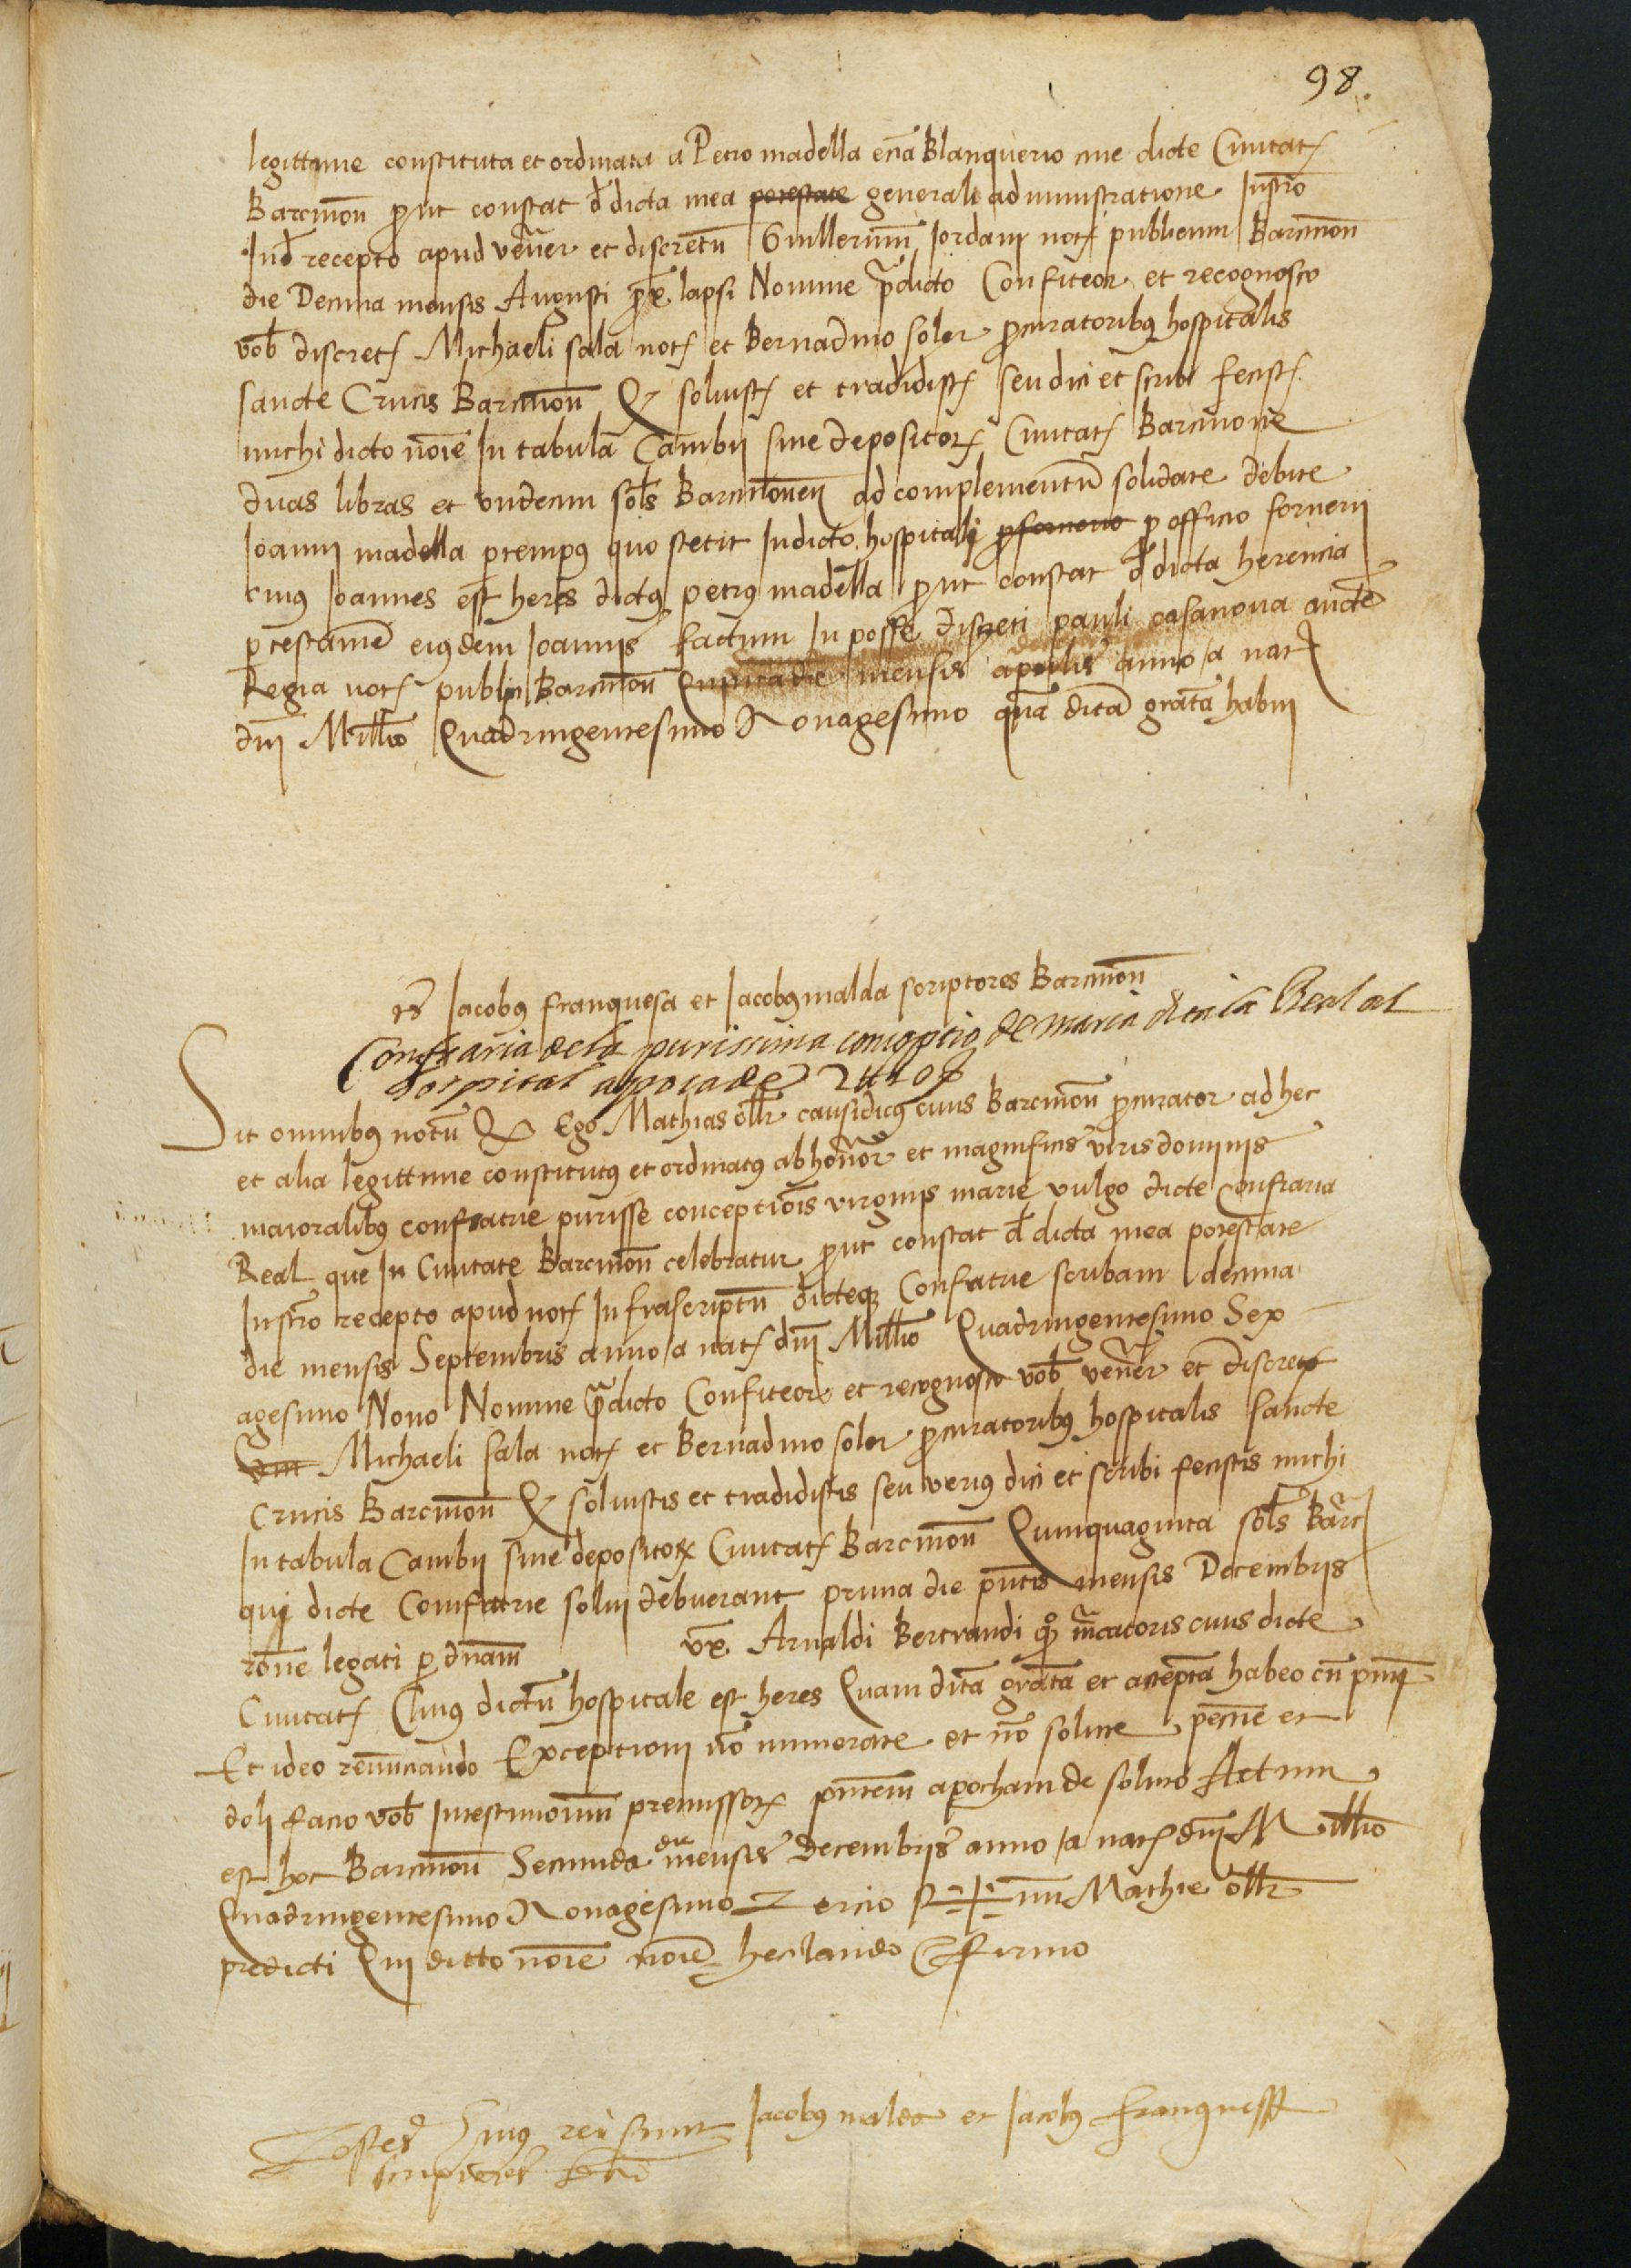 98.
legittime constituta et ordinata a Petro madella etiā Blanquerio cive dicte Civitatꝭ
Barcinoñ prout constat đ dicta mea potestate generali administratione Instro
Inđ recepto apud veneR et discretū Guillermū Iordani notꝭ publicum Barcinoñ
die Decima mensis Augusti prox lapsi Nomine pdicto Confiteor et recognosco
vob discretꝭ Michaeli sala notꝭ et Bernadino soler procuratoribꝰ hospitalis
sancte Crucis Barcinoñ Qꝫ solvistꝭ et tradidistꝭ seu dici et scribi fecistꝭ
michi dicto noīe In tabula Cambij sive depositorꝭ Civitatꝭ Barcinone
duas libras et undecim sols Barcinoneñ ad complementū solidate debite
Ioanni madella ꝑ tempꝰ quo stetit In dicto hospitali ꝓ fornerio ꝓ officio fornerij
cuiꝰ Ioannes est heres dictꝰ petrꝰ madella prout constat đ dicta herencia
ꝑ testamē eiꝰdem Ioannis factum In posse discreti pauli casanova aucte
Regia notꝭ publici Barcinoñ mensis aprilis anno a natꝭ
dnī Millio Quadringentesimo Nonagesimo quā dictā gratā habui
ts Iacobꝰ franquesa et Iacobꝰ malda scriptores Barcinoñ
Confraria de la purissima concepcio de Maria dita la Real al
hospital apoca de 2 ll 10 s
Sit omnibꝰ notū Qꝫ Ego Mathias ollr causidicꝰ civis Barcinoñ procurator ad hec
et alia legittime constitutꝰ et ordinatꝰ ab honoR et magnificis viris dominis
maioralibꝰ confratrie purisse conceptiois virginis marie vulgo dicte Confraria
Real que In Civitate Barcinoñ celebratur prout constat đ dicta mea potestate
Instro recepto apud notꝭ Infrascriptū dicteqꝫ Confratrie scribam decima
die mensis Septembris anno a natꝭ dnī Millio Quadringentesimo Sex
agesimo Nono Nomine pdicto Confiteor et recognosco vob veneR et discretꝭ
Michaeli sala notꝭ et Bernadino soler procuratoribꝰ hospitalis sancte
Crucis Barcinoñ Qꝫ solvistis et tradidistis seu veriꝰ dici et scribi fecistis michi
In tabula Cambij sive depositorꝝ Civitatꝭ Barcinoñ Quinquaginta sols Barcꝭ
qui dicte Confratrie solvi debuerant prima die pntis mensis Decembris
rone legati ꝑ dnam ux. Arnaldi Bertrandi q° mcatoris civis dicte
Civitatꝭ Cuiꝰ dictū hospitale est heres Quam dictā gratā et acceptā habeo cū pnti
Et ideo renunciando Exceptioni nō numerate et nō solute pecūie et
doli facio vob In testimonium premissorꝭ pntem apocham de soluto Actum
est hoc Barcinoñ Secunda die mensis decembris anno a natꝭ dnī Millio
Quadringentesimo Nonagesimo Tercio S+num Mathie ollr
predicti Qui dicto noīe noīe hec laudo et firmo
Testes huiꝰ rei sunt Iacobꝰ malda et Iacobꝰ franquessa
scriptores Barc